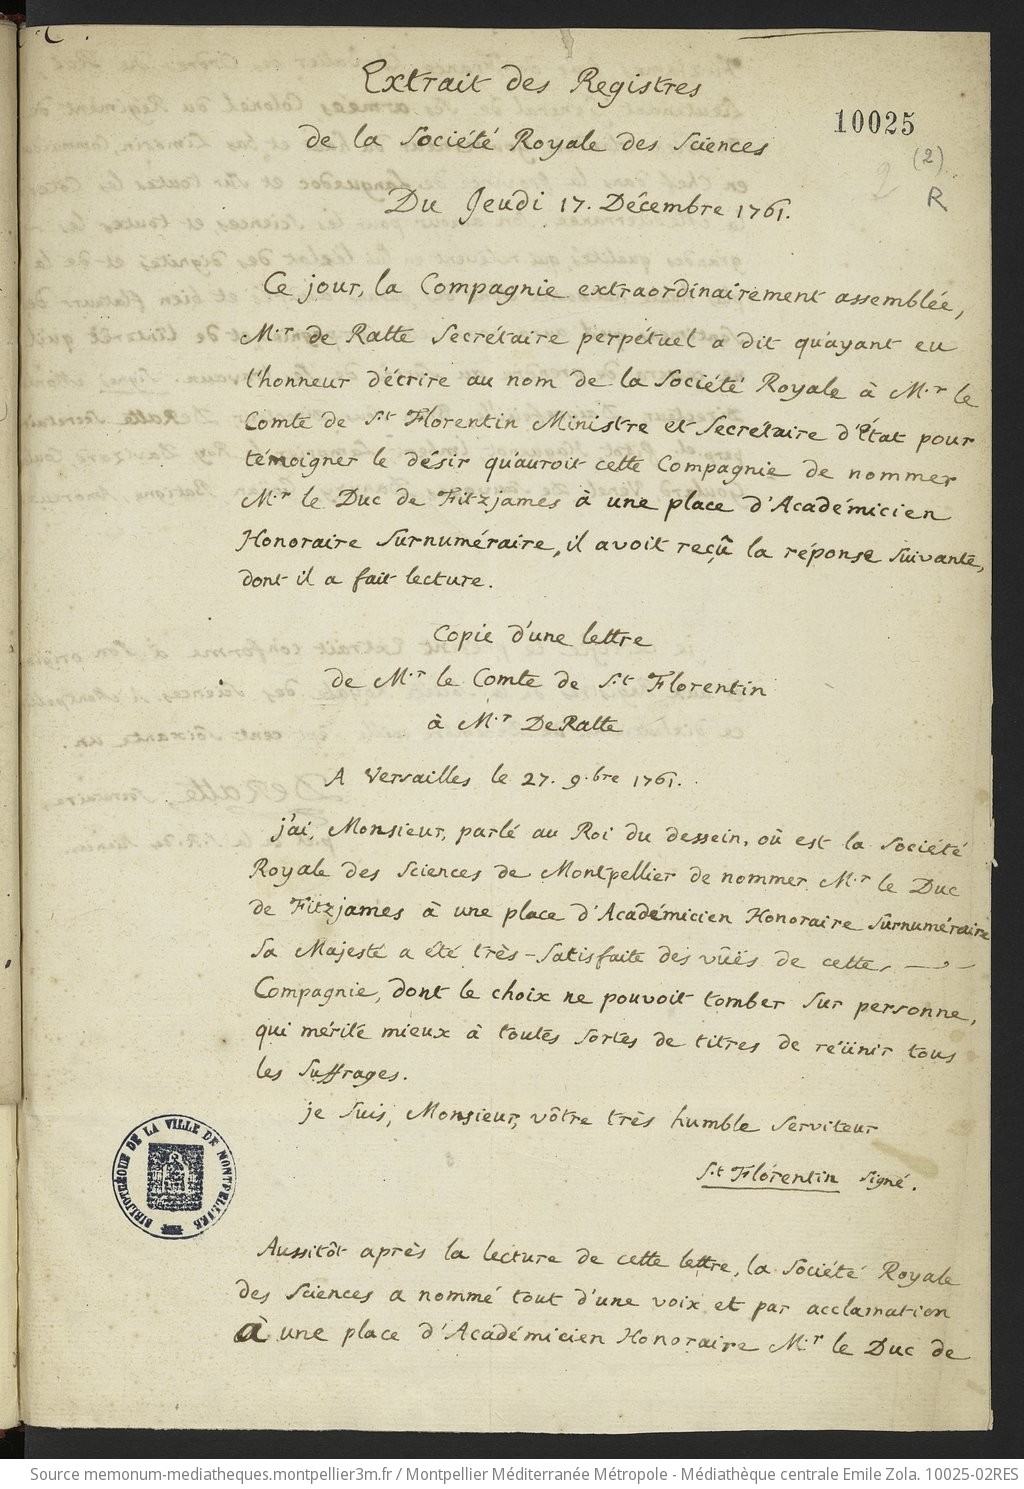 Extrait des Registres
de la Société Royale des Sciences
Du Jeudi 17. Décembre 1761.
10025
(2)
2
R
Ce jour, la Compagnie extraordinairement assemblée,
M.r de Ratte Secrétaire perpétuel a dit qu'ayant eu
l'honneur d'écrire au nom de la Société Royale à M.r le
Comte de S.t Florentin Ministre et Secrétaire d'Etat pour
témoigner le désir qu'auroit cette Compagnie de nommer
M.r le Duc de Fitzjames à une place d'Académicien
Honoraire Surnuméraire, il avoit reçû la réponse suivante,
dont il a fait lecture.
Copie d'une lettre
de M.r le Comte de S.t Florentin
à M.r DeRatte
A Versailles le 27. 9.bre 1761.
j'ai, Monsieur, parlé au Roi du dessein, où est la Société
Royale des Sciences de Montpellier de nommer M.r le Duc
de Fitzjames à une place d'Académicien Honoraire Surnuméraire
Sa Majesté a été très-satisfaite des vûës de cette
Compagnie, dont le choix ne pouvoit tomber sur personne,
qui mérite mieux à toutes sortes de titres de réünir tous
les suffrages.
je suis, Monsieur, vôtre très humble serviteur
S.t Florentin signé.
BIBLIOTHEQUE DE LA VILLE DE MONTPELLIER
Aussitôt après la lecture de cette lettre, la Société Royale
des Sciences a nommé tout d'une voix et par acclamation
à une place d'Académicien Honoraire M.r le Duc de
Source memonum-mediatheques.montpellier3m.fr / Montpellier Méditerranée Métropole - Médiathèque centrale Emile Zola. 10025-02RES